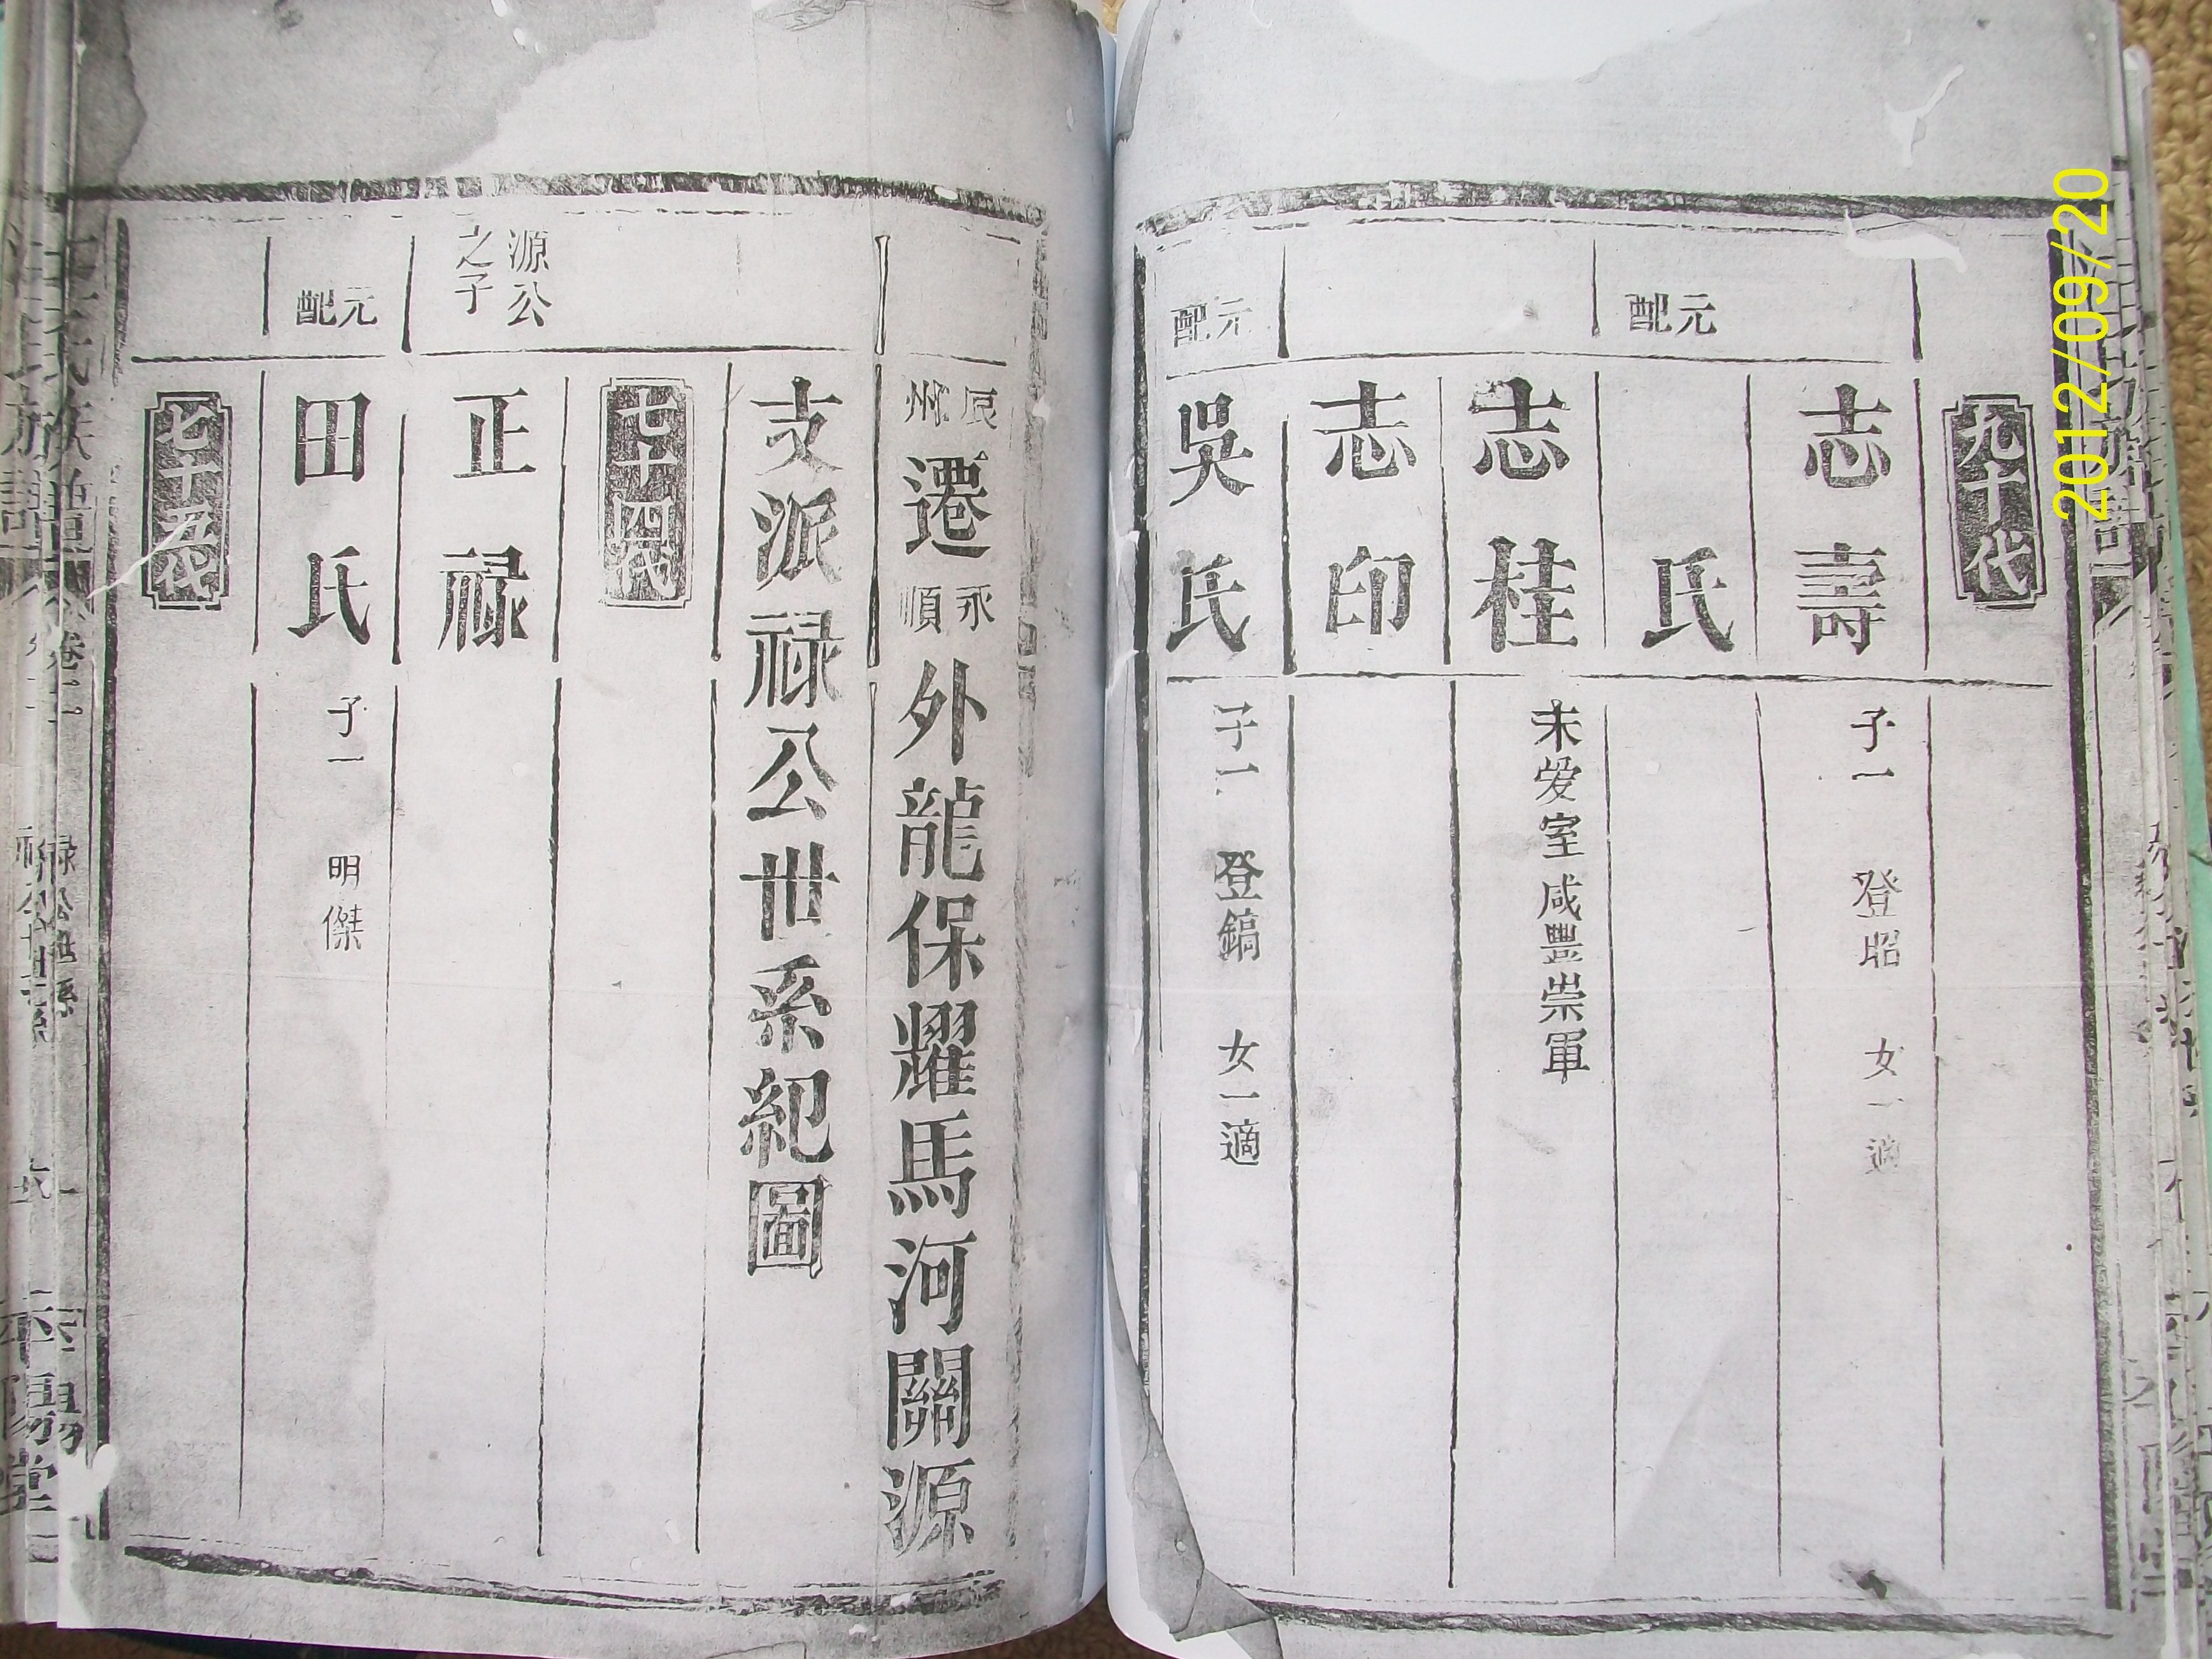 九十代
志壽
子一 登昭 女一適
元配
氏
志桂
未受室咸豐崇軍
志印
元配
吳氏
子一 登鎬 女一適
辰州遷永順外龍保耀馬河關源
支派祿公世系紀圖
七十四代
源公之子
正祿
元配
田氏
子一 明傑
七十五代
2012/09/20